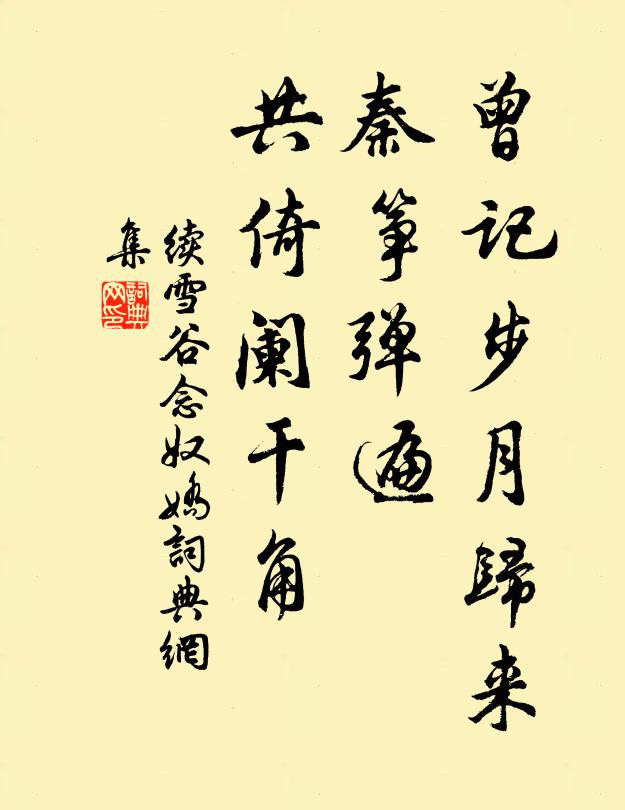 曾记步月歸来
秦筝弹遍
共倚阑干角
续雪谷念奴嬌詞典網
集
詞典
网印